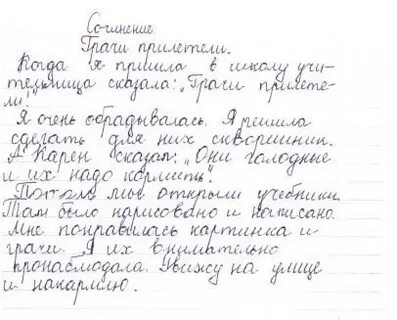 Сочинение
Грачи прилетели.
Когда я пришла в школу учи-
тельница сказала: „Грачи прилете-
ли".
Я очень обрадывалась. Я решила
сделать для них скворешник.
А Карен сказал: „Они голодные
и их надо кармить".
Потом мы открыли учебники.
Там было нарисовано и написано.
Мне понравилась картинка и
грачи. Я их внимательно
пронаблюдала. Увижу на улице
и накармлю.